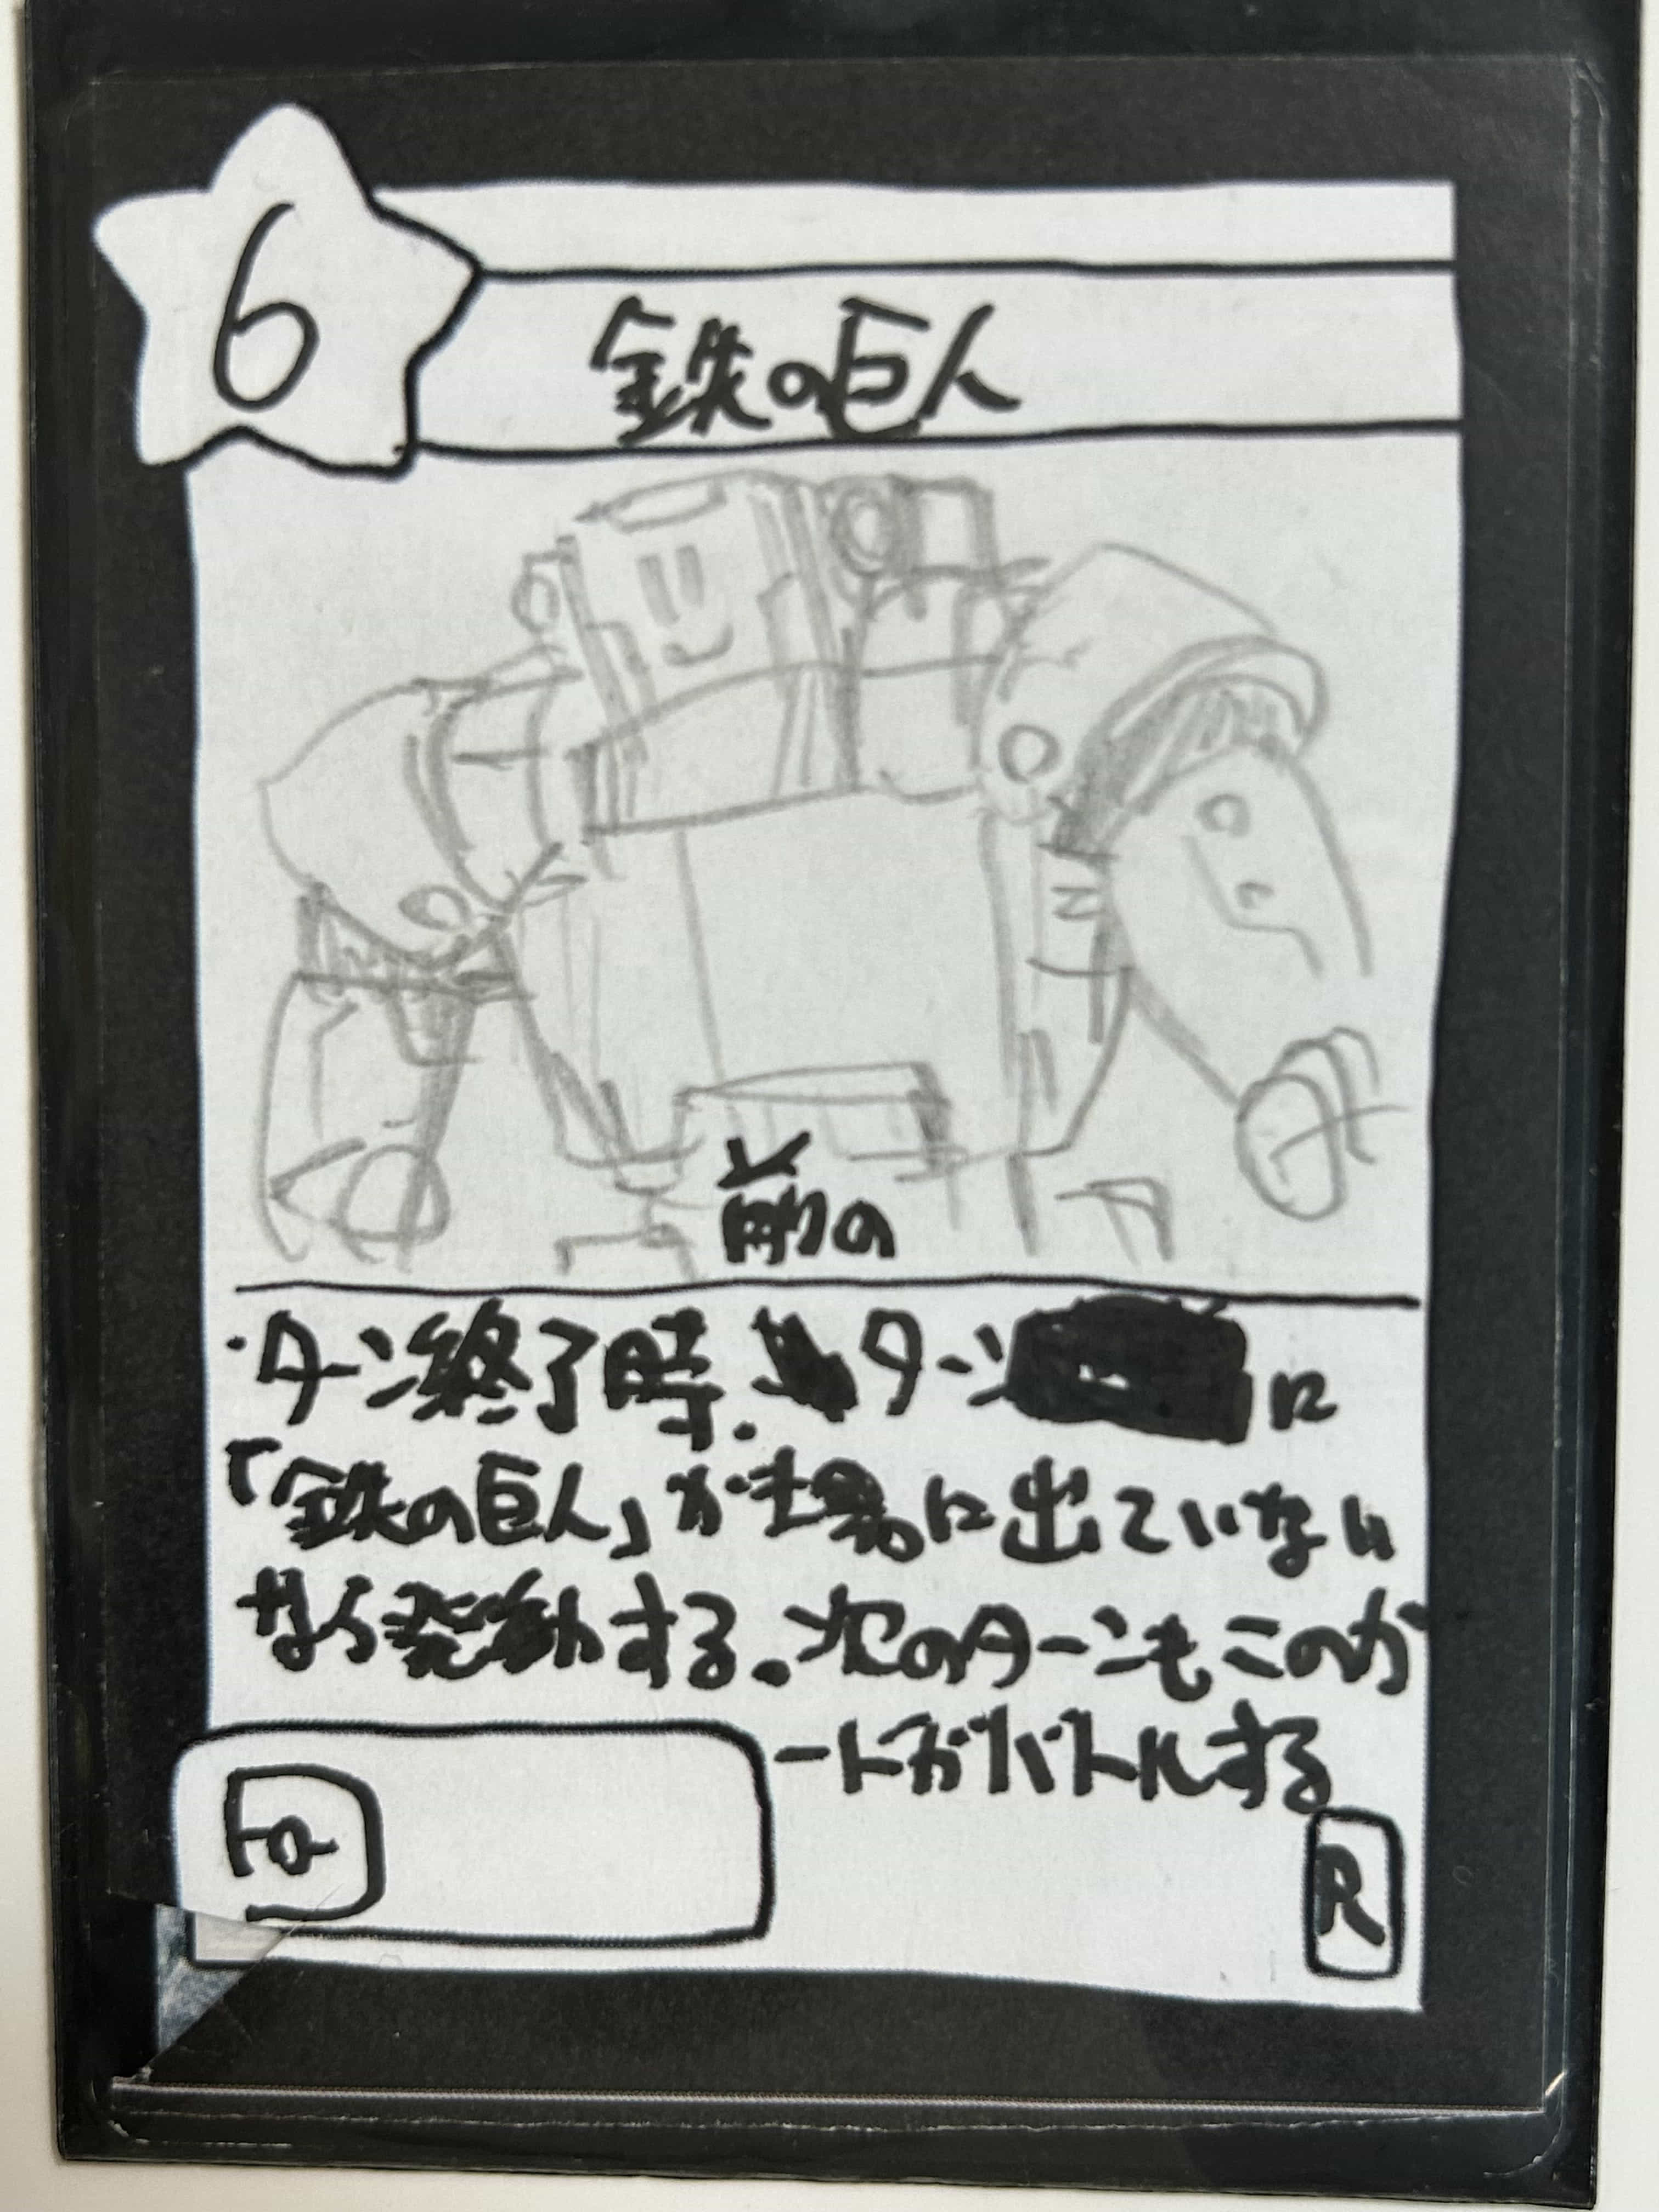 6
鉄の巨人
前の
・ターン終了時、ターンに
「鉄の巨人」が場に出ていない
なら発動する。次のターンもこのカ
ードがバトルする
Fa
R